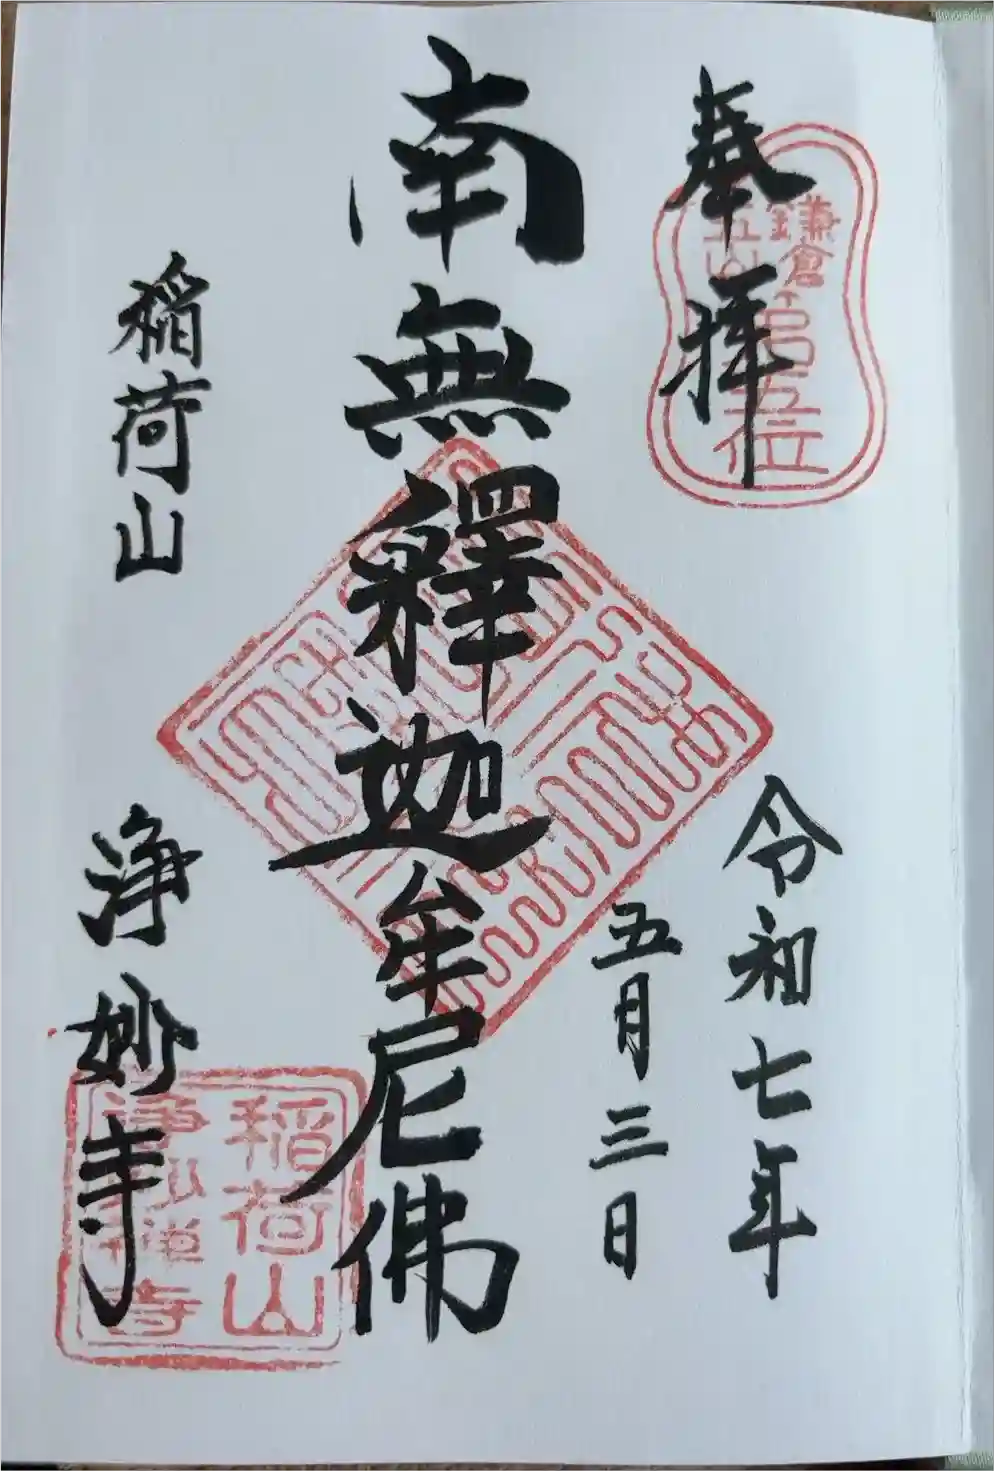 奉拝
鎌倉
五山
第五位
令和七年
五月三日
南無釋迦牟尼佛
稲荷山
浄妙寺
稲荷山
浄妙禅寺